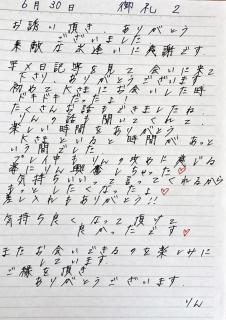 6月30日 御礼 2
お誘い頂き ありがとう
ございました
素敵な出逢いに感謝です
写メ日記等を見て 会いに来て
下さり ありがとうございます
初めて 大きにお会いした時
ドキドキ
たくさんお話できましたね
りんの話も聞いてくれて
楽しい時間をありがとう
大きい方と 時間があっと
いう間でした
プレイ中もりんの攻めに感じる
番にりん興奮しちゃった♡
気持ちいいって言ってくれるから
もっとしたくなったよ♡
差し入れもありがとう!!
気持ち良くなって頂けて
良かったです♡
またお会いできるのを楽しみに
しています
ご縁を頂き
ありがとうございます
りん